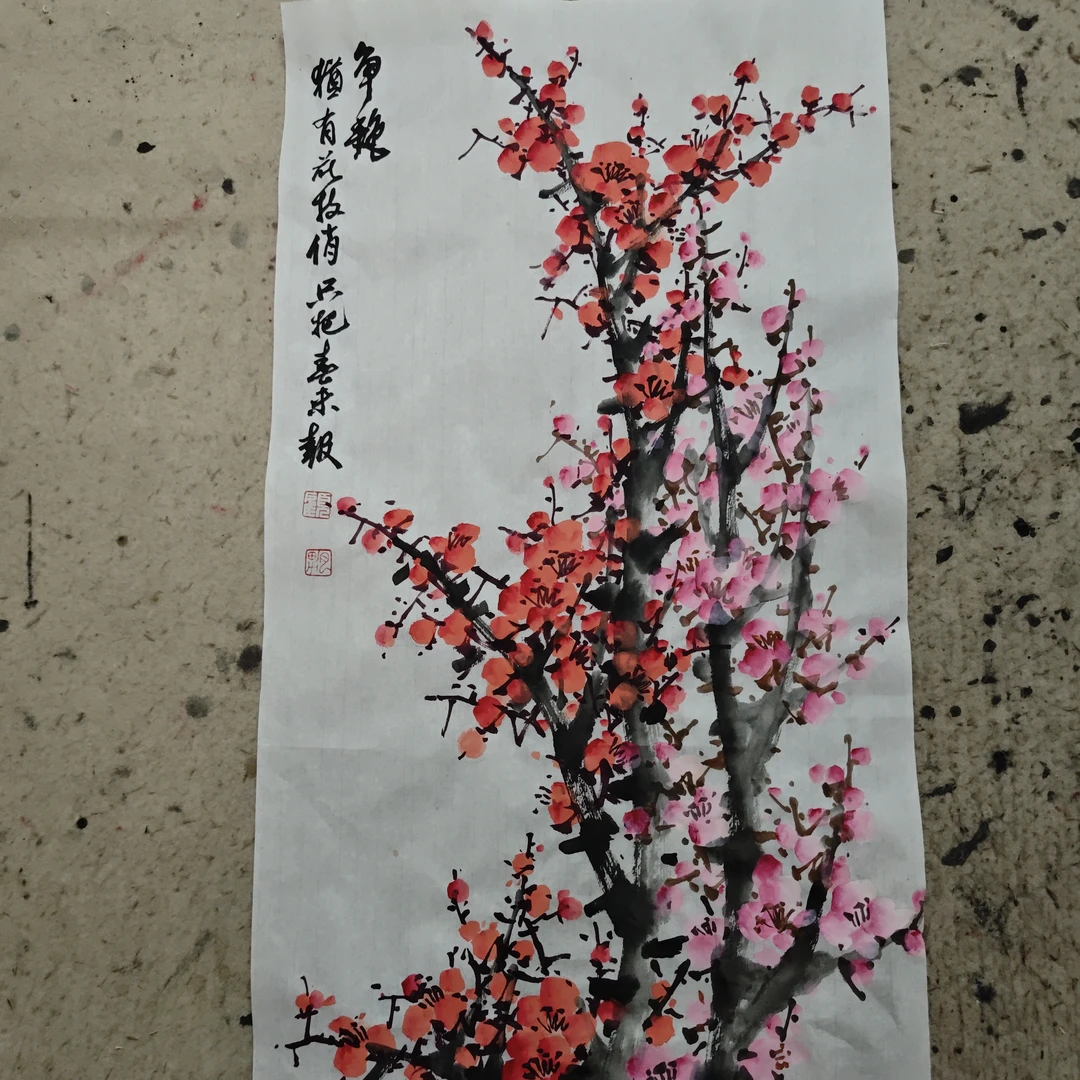 争艳
猶有花枝俏只把春来報